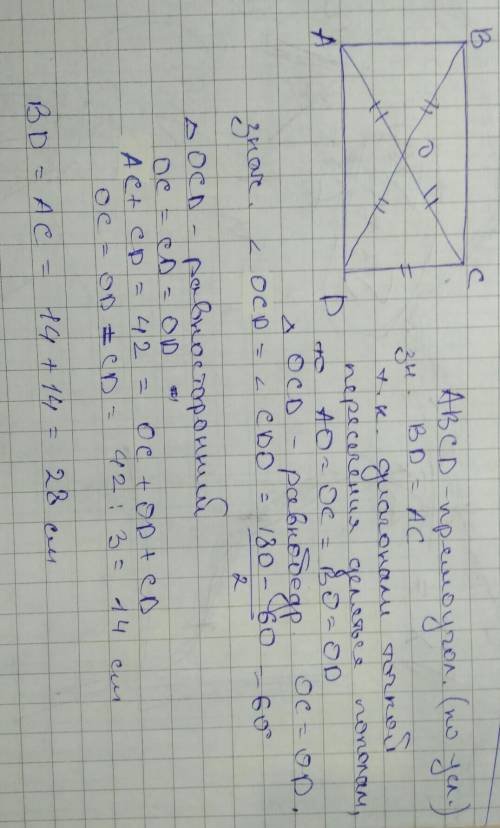 A B C D O
ABCD - прямоугол. (по усл.)
зн. BD = AC
т.к. диагонали точкой
пересечения делятся пополам,
то AO = OC = BO = OD
△ OCD - равнобедр. OC = OD,
знач. < OCD = < CDO = 180 - 60 / 2 = 60
△ OCD - равносторонний
OC = CD = OD =,
AC + CD = 42 = OC + OD + CD
OC = OD = CD = 42 : 3 = 14 см
BD = AC = 14 + 14 = 28 см